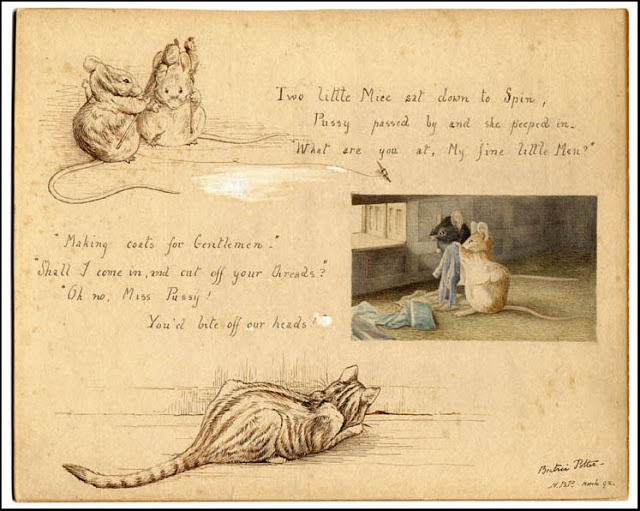 Two little Mice sat down to Spin,
Pussy passed by and she peeped in.
"What are you at, My fine little Men?"
"Making coats for Gentlemen."
"Shall I come in, and cut off your threads?"
"Oh no, Miss Pussy!
You'd bite off our heads!"
Beatrix Potter
March 92